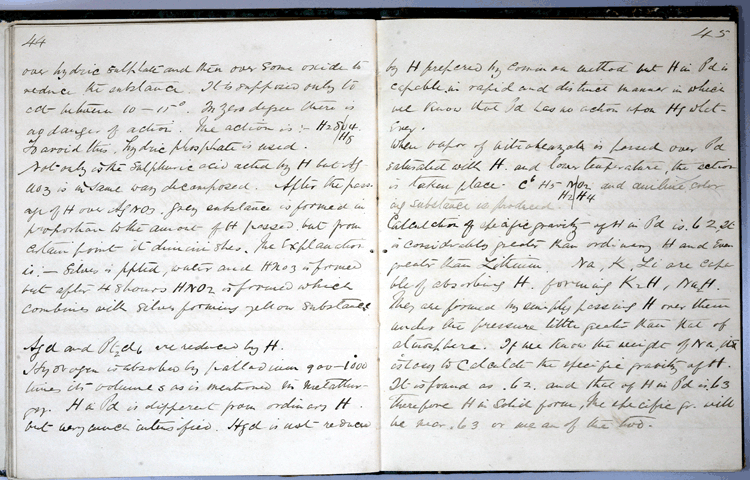 44
over hydric sulphate and then over some oxide to
reduce the substance. It is supposed only to
act between 10 – 15°. In zero degree there is
no danger of action. The action is :– H2SO4
H8
To avoid this, hydric phosphate is used.
Not only is the sulphuric acid acted by H but Ag-
NO3 is in same way decomposed. After the pass-
age of H over AgNO3 grey substance is formed in
proportion to the amount of H passed, but from
certain point it diminishes. The Explanation
is :– Silver is pptd, water and HNO3 is formed
but after 48 hours HNO2 is formed which
combines with silver forming yellow substance
Agcl and are reduced by H.
Hydrogen is absorbed by palladium 900–1000
times its volume as is mentioned in metallur-
gy. H in Pd is different from ordinary H
but very much intensified. Agcl is not reduced
45
by H prepared by common method but H in Pd is
capable in rapid and distinct manner in which
we know that Pd has no action upon Hg what-
Ever.
When vapor of nitrobenzole is passed over Pd
saturated with H. and lower temperature, the action
is taken place. C6 H5 NO2 and aniline color
H2 H4
ing substance is produced.
Calculation of specific gravity of H in Pd is .62. It
is considerably greater than ordinary H and Even
greater than Lithium. Na, K, Li are capa
ble of absorbing H, forming K2H, Na2H.
They are formed by simply passing H over them
under the pressure little greater than that of
atmosphere. If we know the weight of Na
is easy to calculate the specific gravity of H.
It is found as .62. and that of H in Pd is .63
therefore H in solid form, the specific gr. will
be near .63 or mean of the two.